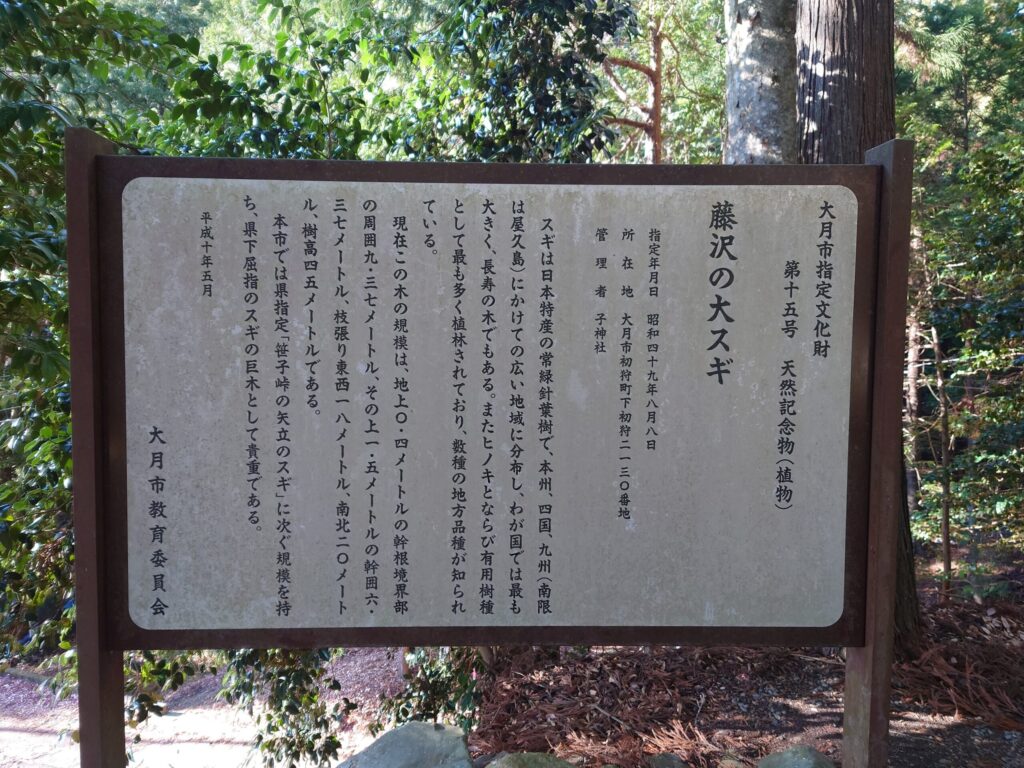 大月市指定文化財
第十五号 天然記念物(植物)
藤沢の大スギ
指定年月日 昭和四十九年八月八日
所在地 大月市初狩町下初狩二一三〇番地
管理者 子神社
スギは日本特産の常緑針葉樹で、本州、四国、九州(南限
は屋久島)にかけての広い地域に分布し、わが国では最も
大きく、長寿の木でもある。またヒノキとならび有用樹種
として最も多く植林されており、数種の地方品種が知られ
ている。
現在この木の規模は、地上〇・四メートルの幹根境界部
の周囲九・三七メートル、その上一・五メートルの幹囲六・
三七メートル、枝張り東西一八メートル、南北二〇メート
ル、樹高四五メートルである。
本市では県指定「笹子峠の矢立のスギ」に次ぐ規模を持
ち、県下屈指のスギの巨木として貴重である。
平成十年五月
大月市教育委員会